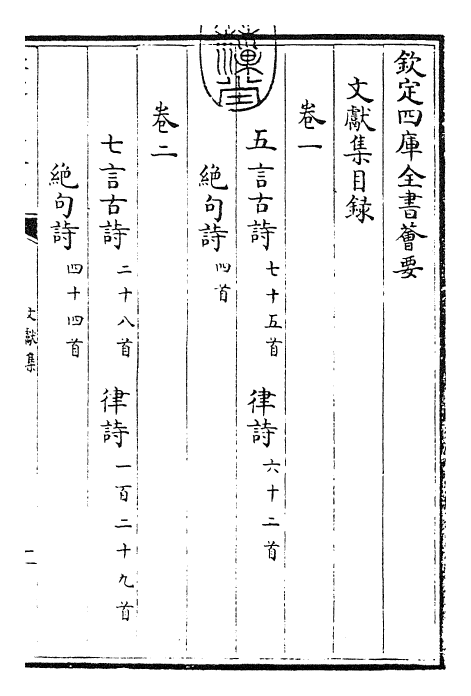 欽定四庫全書薈要
文獻集目録
卷一
五言古詩七十五首 律詩六十二首
絶句詩四首
卷二
七言古詩二十八首 律詩一百二十九首
絶句詩四十四首
文獻集